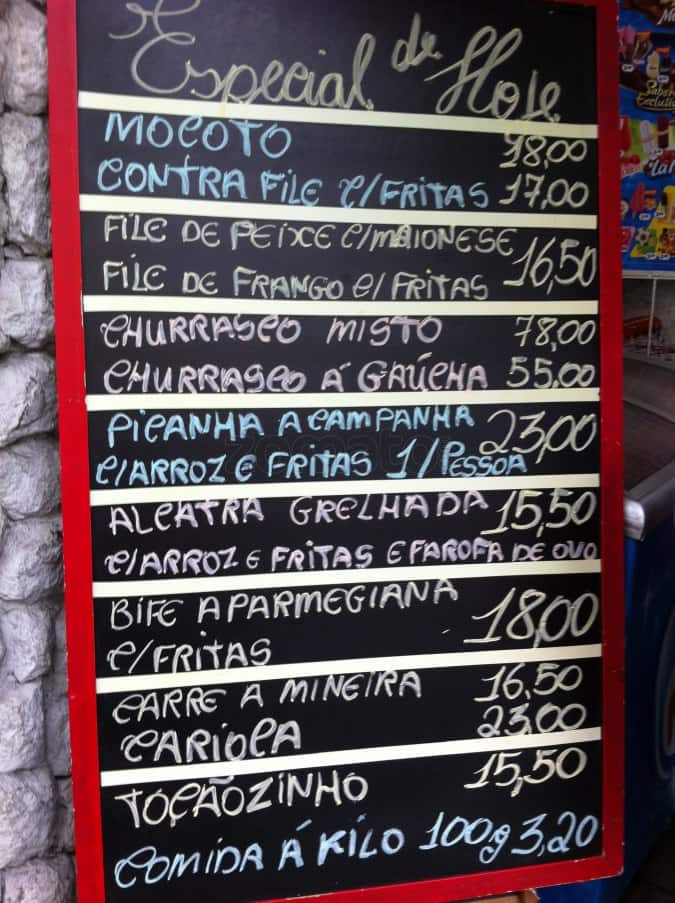 Especial de Hoje
MOCOTO 18,00
CONTRA FILE C/FRITAS 17,00
FILE DE PEIXE C/MAIONESE 16,50
FILE DE FRANGO C/ FRITAS
CHURRASCO MISTO 78,00
CHURRASCO Á GAÚCHA 55,00
PICANHA A CAMPANHA 23,00
C/ARROZ E FRITAS 1/PESSOA
ALCATRA GRELHADA 15,50
C/ARROZ E FRITAS E FAROFA DE OVO
BIFE A PARMEGIANA 18,00
C/FRITAS
CARRE A MINEIRA 16,50
CARIOCA 23,00
TOÇÃOZINHO 15,50
COMIDA Á KILO 100g 3,20
zomato